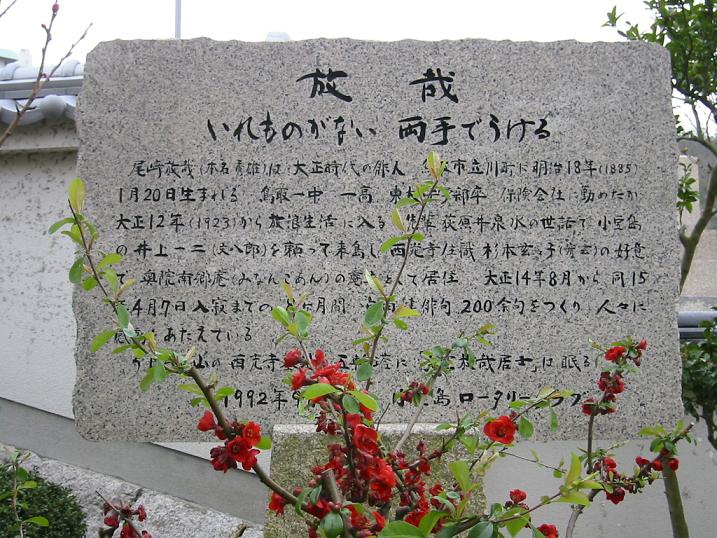 放哉
いれものがない 両手でうける
尾崎放哉(本名秀雄)は 大正時代の俳人 市立川町に明治18年(1885)
1月20日生まれる 鳥取一中 一高 部卒 保険会社に勤めたが
大正12年(1923)から放浪生活に入る 荻原井泉水の世話で 小豆島
の井上一二(文八郎)を頼って来島し 西光寺住職 杉本玄々子(宥玄)の好意
で 奥院南郷庵(みなんごあん)の して居住 大正14年8月から 同15
年4月7日入寂までの 8ヶ月間 俳句 200余句をつくり 人々に
をあたえている
山の西光寺 に 放哉居士」は眠る
1992年 島ロータリー